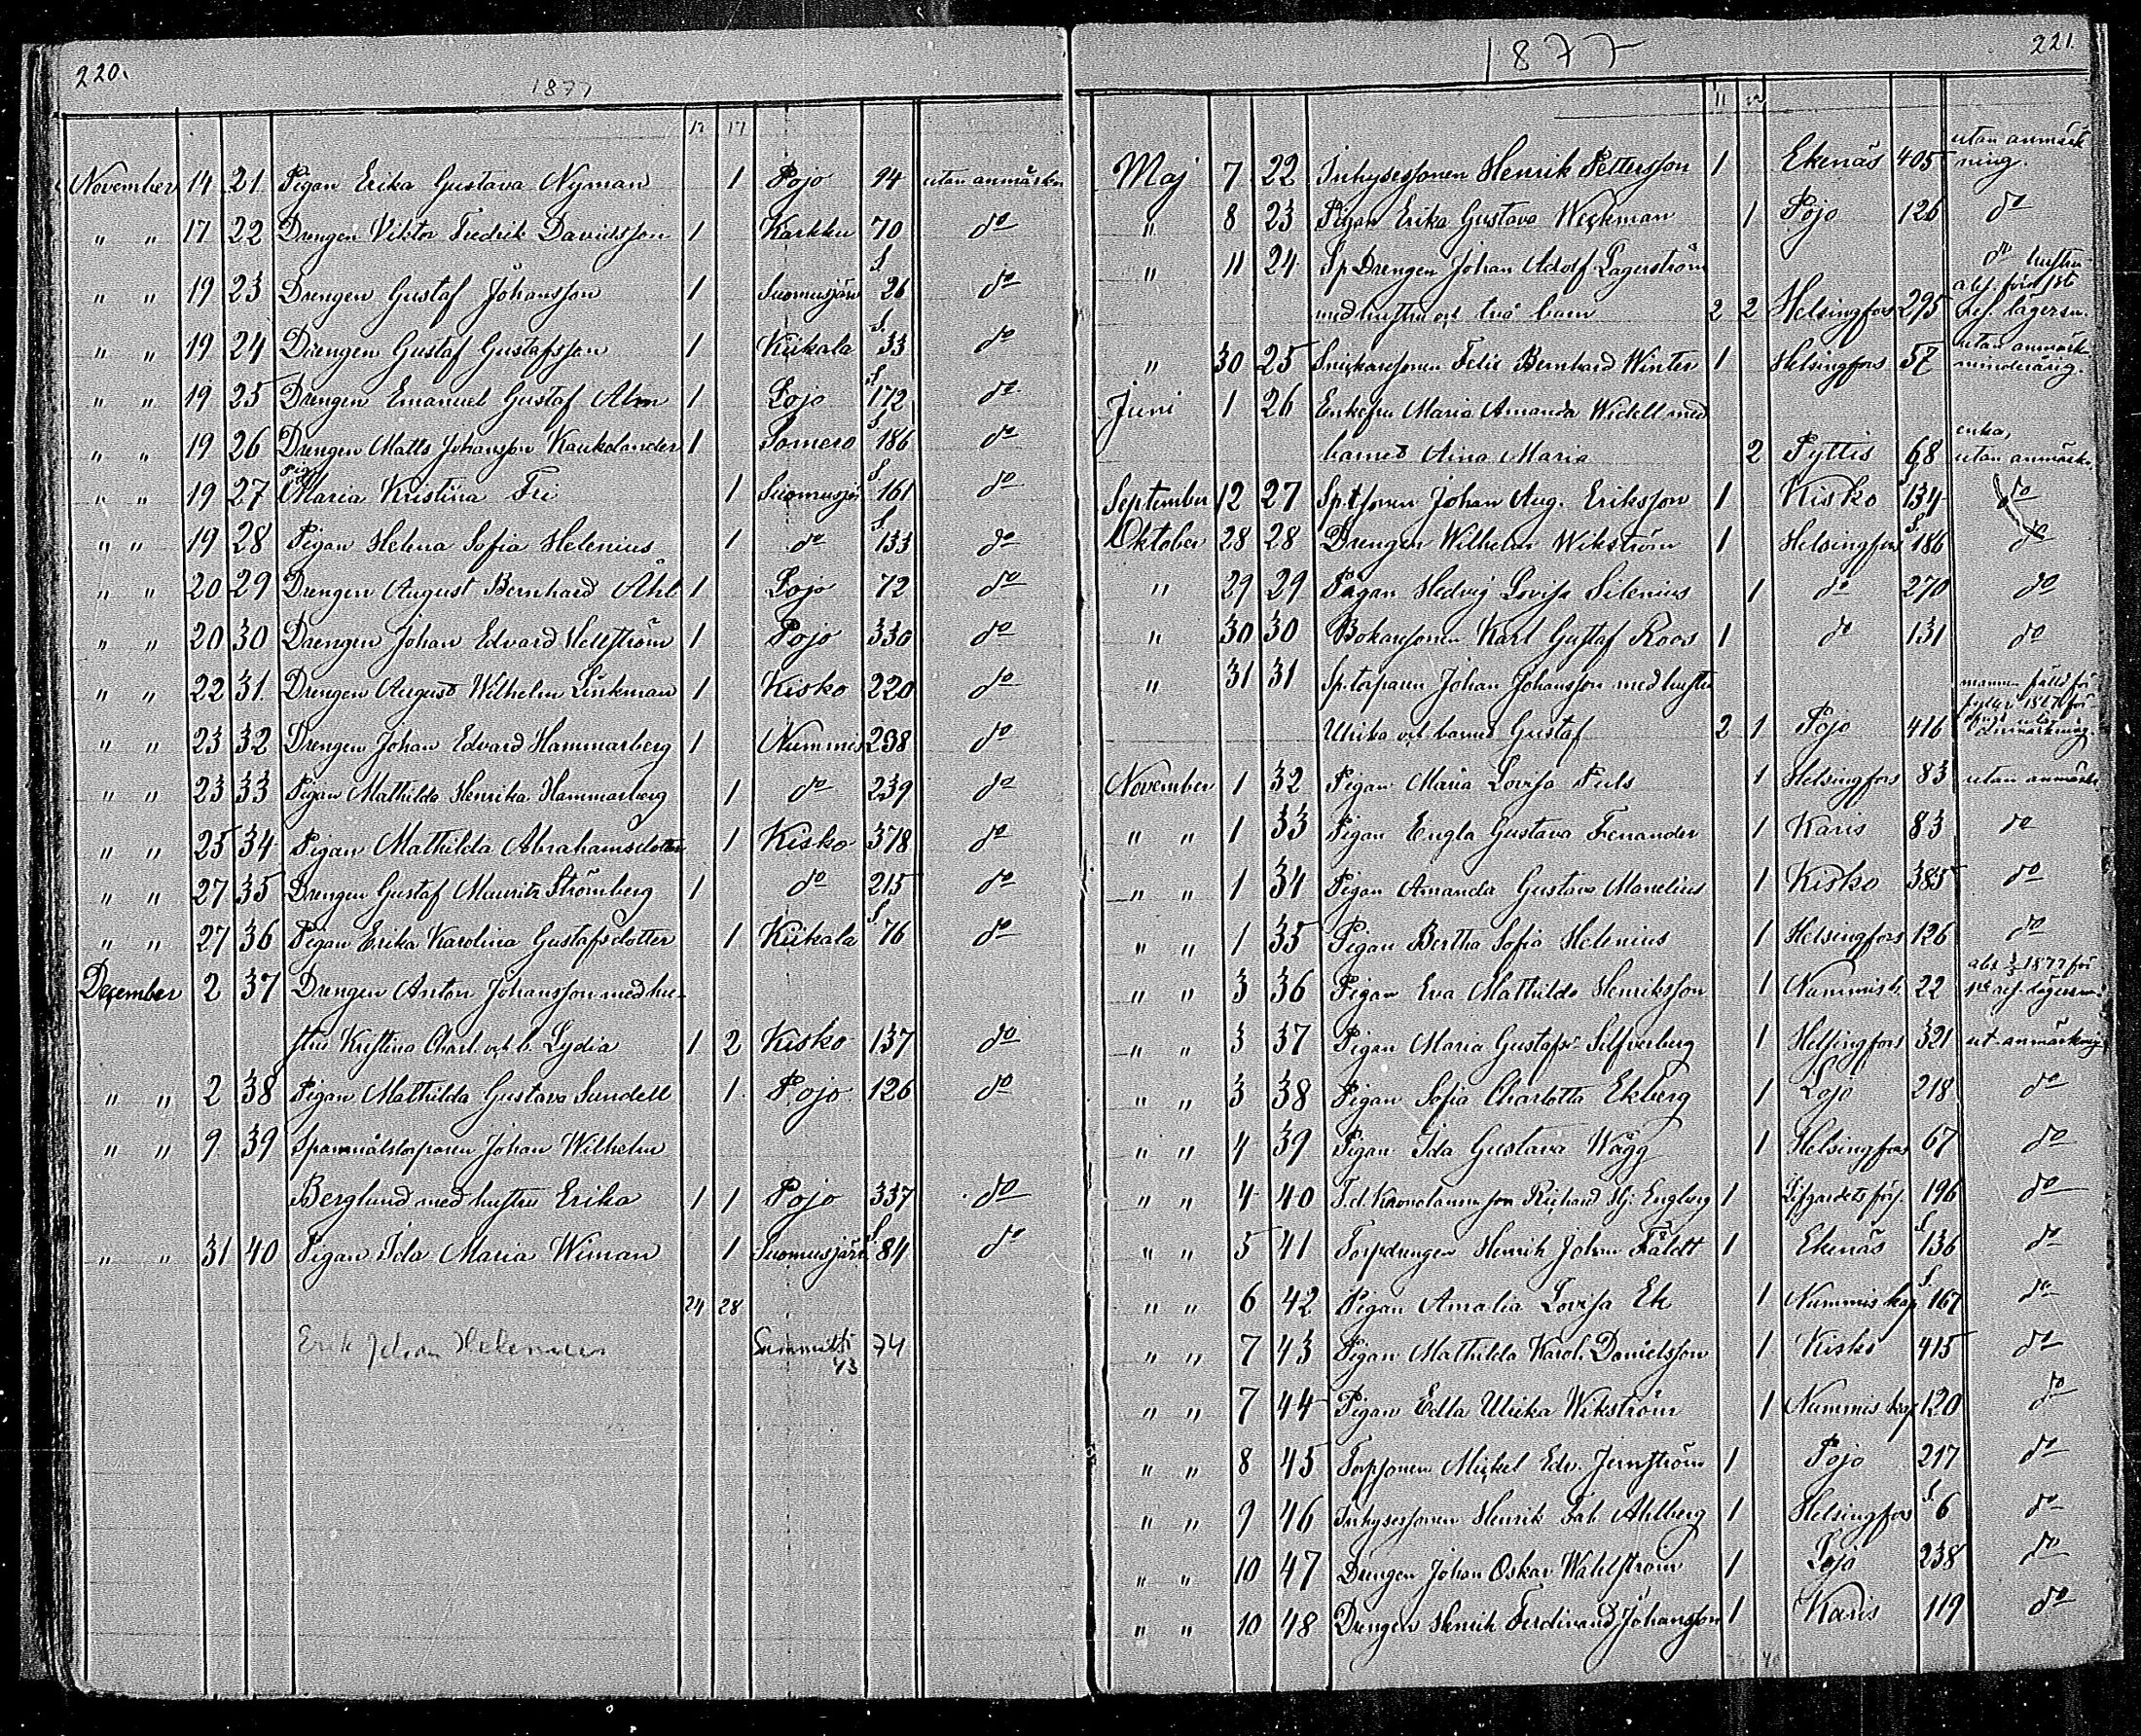 220.
1877
12 17
November 14 21 Pigan Erika Gustava Nyman 1 Pojo 94 utan anmärkn
" " 17 22 Drengen Viktor Fredrik Davidsson 1 Karkku 70 do
" " 19 23 Drengen Gustaf Johansson 1 Suomusjärvi S. 26 do
" " 19 24 Drengen Gustaf Gustafsson 1 Kiikala S. 33 do
" " 19 25 Drengen Emanuel Gustaf Alm 1 Lojo S. 172 do
" " 19 26 Drengen Matts Johansson Kaukolander 1 Somero S. 186 do
" " 19 27 Pig. Maria Kristina Fri 1 Suomusjä S. 161 do
" " 19 28 Pigan Helena Sofia Helenius 1 do S. 133 do
" " 20 29 Drengen August Bernhard Åhl 1 Lojo 72 do
" " 20 30 Drengen Johan Edvard Hellström 1 Pojo 330 do
" " 22 31. Drengen August Wilhelm Linkman 1 Kisko 220 do
" " 23 32 Drengen Johan Edvard Hammarberg 1 Nummis 238 do
" " 23 33 Pigan Mathilda Henrika Hammarberg 1 do 239 do
" " 25 34 Pigan Mathilda Abrahamsdotter 1 Kisko 378 do
" " 27 35 Drengen Gustaf Mauritz Strömberg 1 do 215 do
" " 27 36 Pigan Erika Karolina Gustafsdotter 1 Kiikala S. 76 do
December 2 37 Drengen Anton Johansson med hu-
stru Kristina Charl. och b. Lydia 1 2 Kisko 137 do
" " 2 38 Pigan Mathilda Gustava Sundell 1. Pojo 126 do
" " 9 39 Spannmålstorparen Johan Wilhelm
Berglund med hustru Erika 1 1 Pojo 337 do
" " 31 40 Pigan Ida Maria Wiman 1 Suomusjärvi S. 84 do
24 28
Erik Johan Helenius 74
43
1877
221.
11
Maj 7 22 Inhysessonen Henrik Pettersson 1 Ekenäs 405 utan anmärk
ning.
" 8 23 Pigan Erika Gustava Weckman 1 Pojo 126 do
" 11 24 Sp. Drengen Johan Adolf Lagerström do hustru
med hustru och två barn 2 2 Helsingfors 295
" 30 25 Snickaresonen Felix Bernhard Winter 1 Helsingfors 57 utan anmärk.
minderårig.
Juni 1 26 Enkefru Maria Amanda Widell med
barnet Aina Maria 2 Pyttis 68 enka,
utan anmärkn.
September 12 27 Sp.t.sonen Johan Aug. Eriksson 1 Kisko 134 do
Oktober 28 28 Drengen Wilhelm Wikström 1 Helsingfors S. 186 do
" 29 29 Pigan Hedvig Lovisa Silenius 1 do 270 do
" 30 30 Bokaresonen Karl Gustaf Roos 1 do 131 do
" 31 31 Sp.torparen Johan Johansson med hustru
Ulrika och barnet Gustaf 2 1 Pojo 416 anmärkning.
November 1 32 Pigan Maria Lovisa Feels 1 Helsingfors 83 utan anmärkn.
" " 1 33 Pigan Engla Gustava Frenander 1 Karis 83 do
" " 1 34 Pigan Amanda Gustava Manelius 1 Kisko 385 do
" " 1 35 Pigan Bertha Sofia Helenius 1 Helsingfors 126 do
" " 3 36 Pigan Eva Mathilda Henriksson 1 Nummis k. 22
" " 3 37 Pigan Maria Gustafs. Silfverberg 1 Helsingfors 321 ut. anmärkning
" " 3 38 Pigan Sofia Charlotta Ekberg 1 Lojo 218 do
" " 4 39 Pigan Ida Gustava Wägg 1 Helsingfors 67 do
" " 4 40 F.d. Kronolänsm. son Richard Hj. Engberg 1 Lifgardets förs. 196 do
" " 5 41 Torpdrengen Henrik Johan Fäldt 1 Ekenäs S. 136 do
" " 6 42 Pigan Amalia Lovisa Ek 1 Nummis kap S. 167 do
" " 7 43 Pigan Mathilda Karol. Danielsson 1 Kisko 415 do
" " 7 44 Pigan Edla Ulrika Wikström 1 Nummis kap 120 do
" " 8 45 Torpsonen Mickel Edv. Jernström 1 Pojo 217 do
" " 9 46 Inhysessonen Henrik Joh. Ahlberg 1 Helsingfors S. 6 do
" " 10 47 Drengen Johan Oskar Wahlström 1 Lojo 238 do
" " 10 48 Drengen Henrik Ferdinand Johansson 1 Karis 119 do